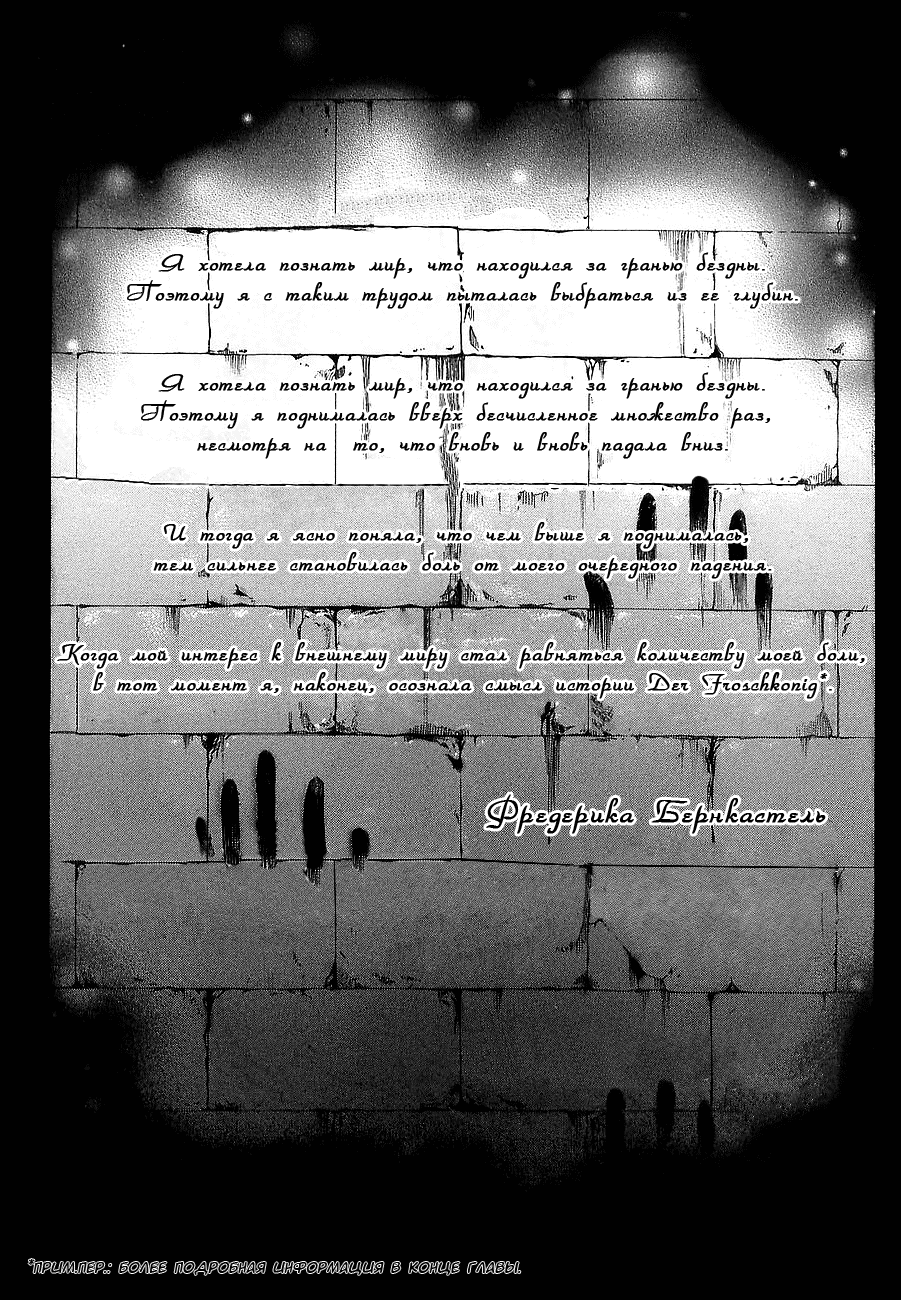 Я хотела познать мир, что находился за гранью бездны.
Поэтому я с таким трудом пыталась выбраться из ее глубин.
Я хотела познать мир, что находился за гранью бездны.
Поэтому я поднималась вверх бесчисленное множество раз,
несмотря на то, что вновь и вновь падала вниз.
И тогда я ясно поняла, что чем выше я поднималась,
тем сильнее становилась боль от моего очередного падения.
Когда мой интерес к внешнему миру стал равняться количеству моей боли,
в тот момент я, наконец, осознала смысл истории Der Froschkonig*.
Фредерика Бернкастель
*Прим.пер.: более подробная информация в конце главы.